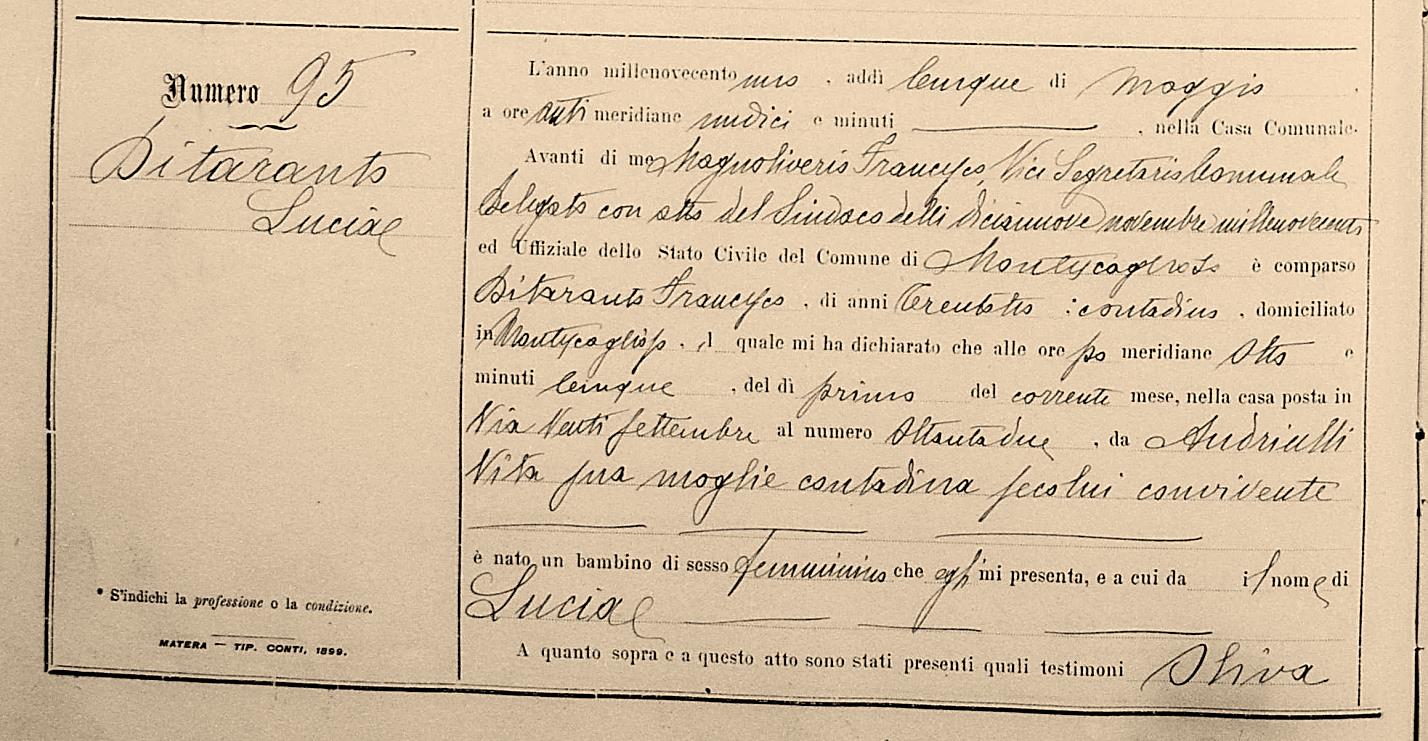 Numero 95
Ditaranto
Lucia
* S'indichi la professione o la condizione.
MATERA — TIP. CONTI, 1899.
L'anno millenovecento uno, addì Cinque di Maggio
a ore anti meridiane undici e minuti ———, nella Casa Comunale.
Avanti di me Francesco, Vice Segretario Comunale
Delegato con atto del Sindaco delli diciannove novembre millenovecento
ed Uffiziale dello Stato Civile del Comune di Montescaglioso è comparso
Ditaranto Francesco, di anni Trentotto contadino, domiciliato
in Montescaglioso, il quale mi ha dichiarato che alle ore po meridiane Otto e
minuti Cinque, del dì primo del corrente mese, nella casa posta in
Via Venti Settembre al numero Ottantadue, da Andriulli
Vita sua moglie contadina seco lui convivente
è nato un bambino di sesso femminino che egli mi presenta, e a cui da il nome di
Lucia
A quanto sopra e a questo atto sono stati presenti quali testimoni Oliva